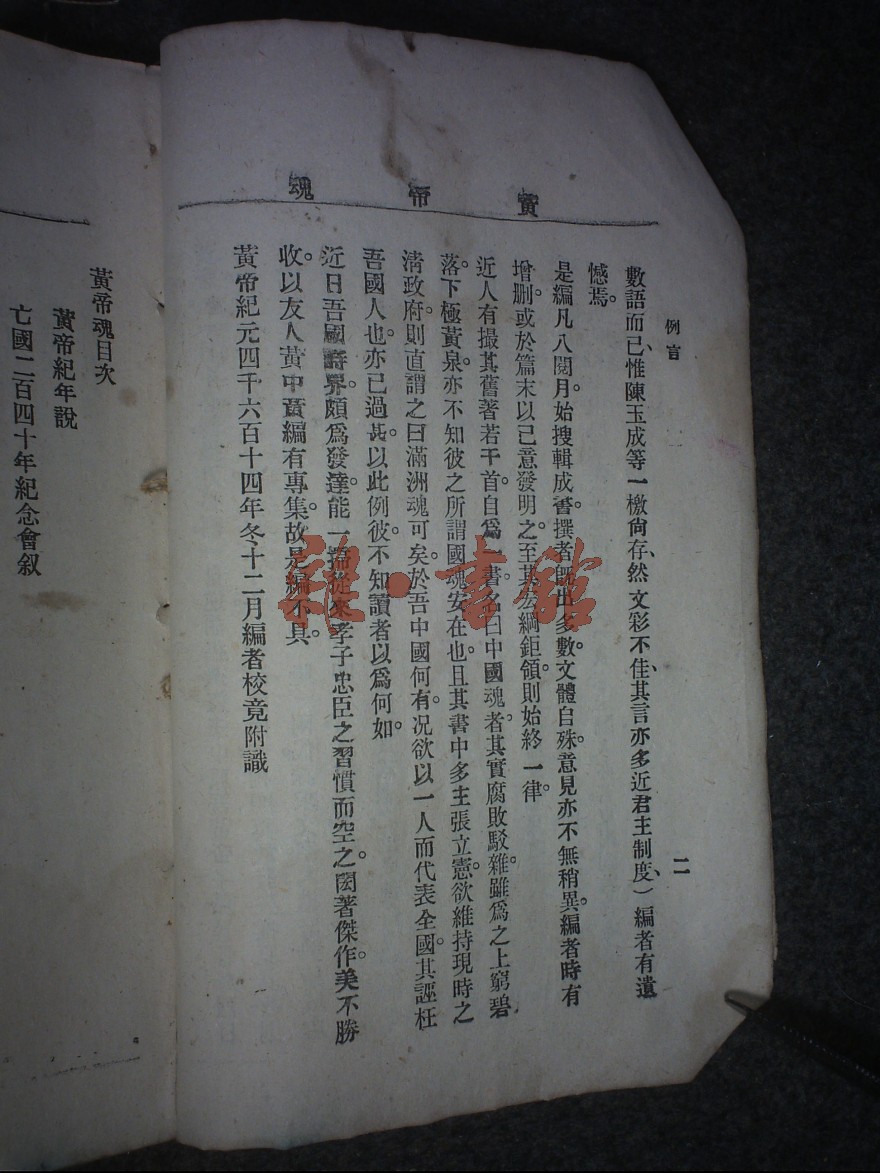 黃帝魂
例言
二
數語而已、惟陳玉成等一檄尙存、然文彩不佳、其言亦多近君主制度、）編者有遺
憾焉。
是編凡八閱月。始搜輯成書。撰者旣出多數。文體自殊。意見亦不無稍異。編者時有
增删。或於篇末以已意發明之。至其宏綱鉅領。則始終一律。
近人有撮其舊著若干首。自爲一書。名曰中國魂者。其實腐敗駁雜。雖爲之上窮碧
落。下極黃泉。亦不知彼之所謂國魂安在也。且其書中多主張立憲。欲維持現時之
淸政府。則直謂之曰滿洲魂可矣。於吾中國何有。况欲以一人而代表全國。其誣枉
吾國人也。亦已過甚。以此例彼。不知讀者以爲何如。
近日吾國詩界。頗爲發達。能一掃從來孝子忠臣之習慣而空之。閎著傑作。美不勝
收。以友人黃中黃編有專集。故是編不具。
黃帝紀元四千六百十四年冬十二月編者校竟附識
黃帝魂目次
黃帝紀年說
亡國二百四十年紀念會叙
雜·書館